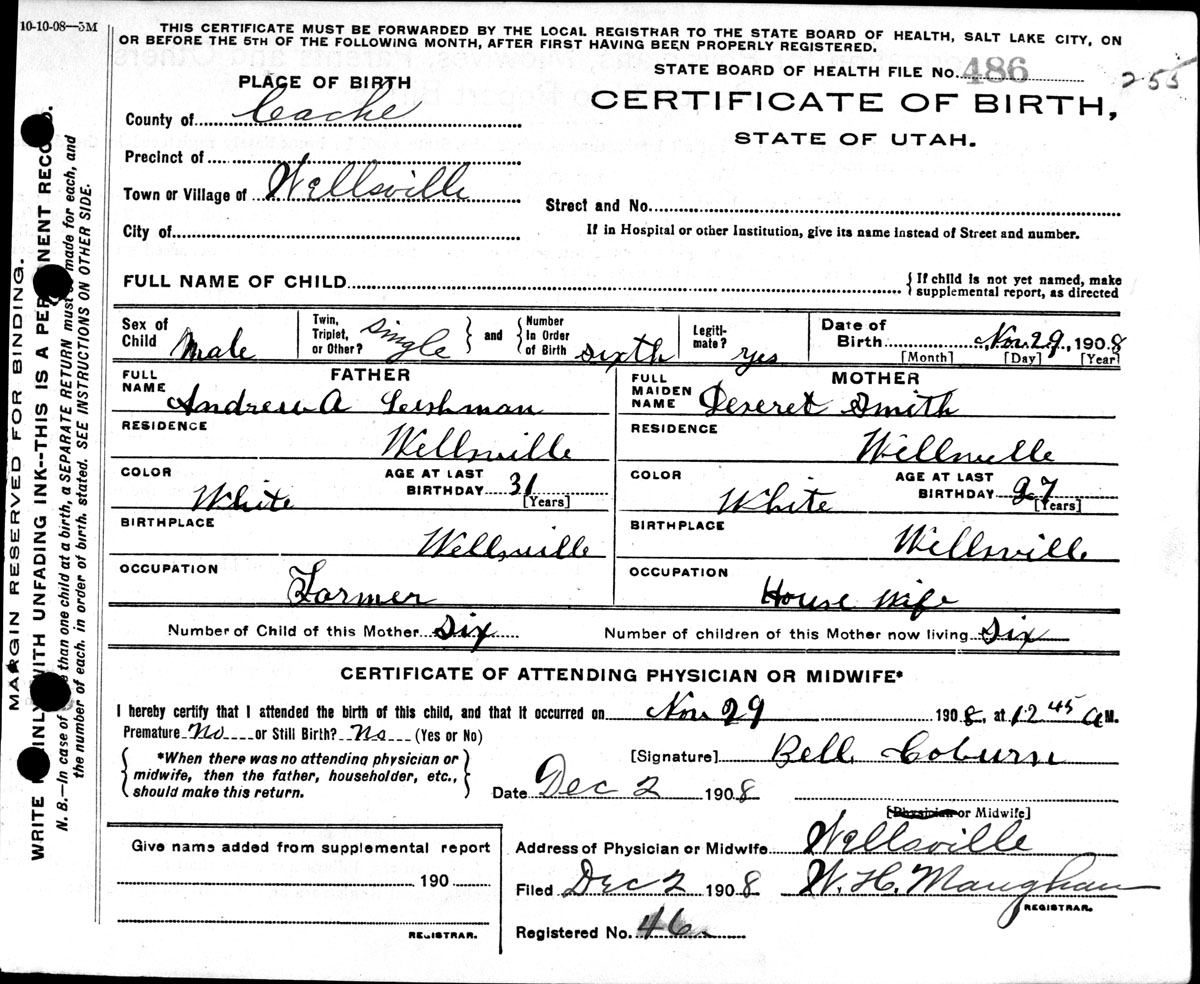 10-10-08—5M
THIS CERTIFICATE MUST BE FORWARDED BY THE LOCAL REGISTRAR TO THE STATE BOARD OF HEALTH, SALT LAKE CITY, ON
OR BEFORE THE 5TH OF THE FOLLOWING MONTH, AFTER FIRST HAVING BEEN PROPERLY REGISTERED.
STATE BOARD OF HEALTH FILE No. 486 255
PLACE OF BIRTH
CERTIFICATE OF BIRTH,
STATE OF UTAH.
County of Cache
Precinct of
Town or Village of Wellsville
Street and No.
City of
If in Hospital or other Institution, give its name instead of Street and number.
FULL NAME OF CHILD
{If child is not yet named, make
supplemental report, as directed
Sex of Child Male
Twin, Triplet, or Other? Single } and { Number In Order of Birth sixth
Legiti-mate? yes
Date of Birth Nov. 29, 1908
[Month] [Day] [Year]
FATHER
MOTHER
FULL NAME Andrew A Leishman
FULL MAIDEN NAME Deseret Smith
RESIDENCE Wellsville
RESIDENCE Wellsville
COLOR White
AGE AT LAST BIRTHDAY 31
[Years]
COLOR White
AGE AT LAST BIRTHDAY 27
[Years]
BIRTHPLACE Wellsville
BIRTHPLACE Wellsville
OCCUPATION Farmer
OCCUPATION House wife
Number of Child of this Mother Six
Number of children of this Mother now living Six
CERTIFICATE OF ATTENDING PHYSICIAN OR MIDWIFE*
I hereby certify that I attended the birth of this child, and that it occurred on Nov 29 1908, at 12 45 A M.
Premature No or Still Birth? No (Yes or No)
[Signature] Bell Coburn
{ *When there was no attending physician or
midwife, then the father, householder, etc.,
should make this return. }
Date Dec 2 1908
[Physician or Midwife]
Give name added from supplemental report
190
REGISTRAR.
Address of Physician or Midwife Wellsville
Filed Dec 2 1908 W. H. Maughan
REGISTRAR.
Registered No. 46
MARGIN RESERVED FOR BINDING.
WRITE PLAINLY WITH UNFADING INK--THIS IS A PERMANENT RECORD.
N. B.—In case of more than one child at a birth, a SEPARATE RETURN must be made for each, and
the number of each, in order of birth, stated. SEE INSTRUCTIONS ON OTHER SIDE.